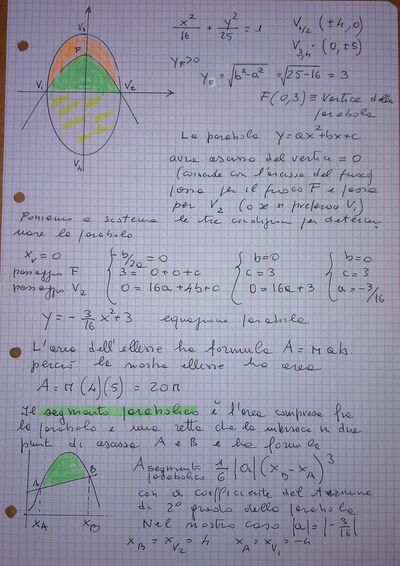 x²/16 + y²/25 = 1   V₁/₂ (±4,0)
V₃,₄ (0,±5)
y_F>0   y_F = √b²-a² = √25-16 = 3
F(0,3) ≡ Vertice della parabola
V₃
F
V₁
V₂
V₄
La parabola y=ax²+bx+c
avrà ascissa del vertice = 0
(coincide con l'ascissa del fuoco)
passa per il fuoco F e passa
per V₂ (o se si preferisce V₁)
Poniamo a sistema le tre condizioni per determi-
nare la parabola
x_v=0   { -b/2a=0   { b=0   { b=0
passaggio F   3=0+0+c   c=3   c=3
passaggio V₂   0=16a+4b+c   0=16a+3   a=-3/16
y=-3/16 x²+3   equazione parabola
L'area dell'ellisse ha formula A=πab
perciò la nostra ellisse ha area
A=π(4)(5)=20π
Il segmento parabolico è l'area compresa fra
la parabola e una retta che la interseca in due
punti di ascissa A e B e ha formula
A segmento parabolico = 1/6 |a| (x_B-x_A)³
con a coefficiente del termine
di 2° grado della parabola
Nel nostro caso |a|=|-3/16|
x_B=x_V₂=4   x_A=x_V₁=-4
A
B
x_A
x_B